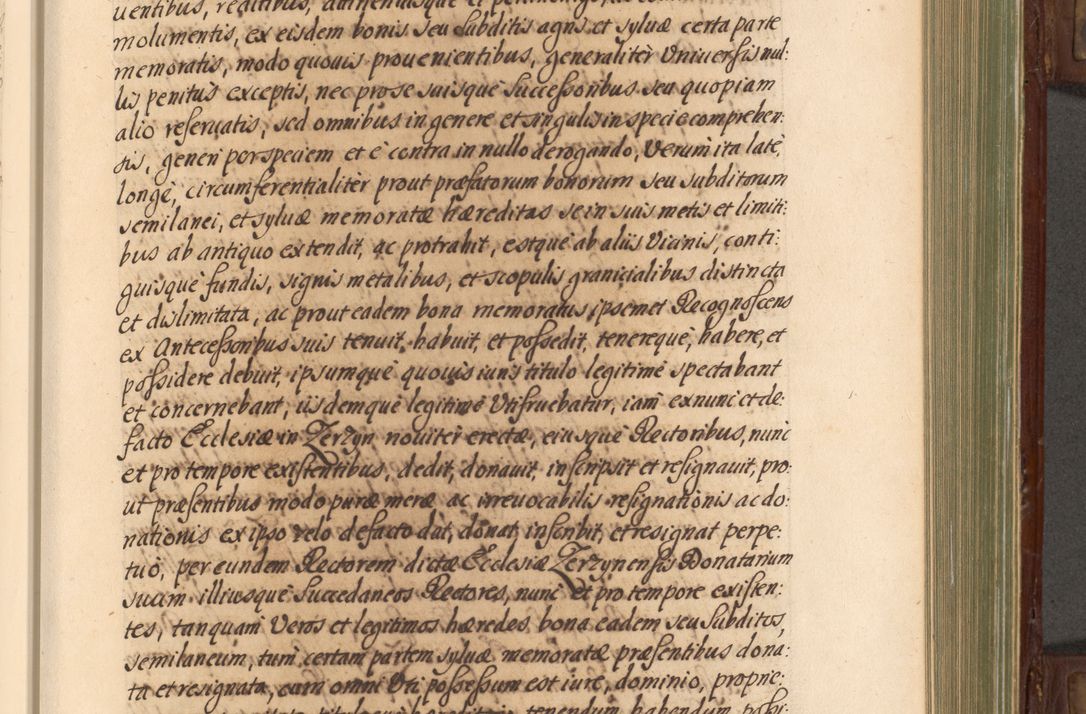 uentibus, reditibus, attinentijsque et
molumentis, ex eisdem bonis seu subditis agris et syluæ certa parte
memoratis, modo quouis prouenientibus, generalitèr Vniuersis nul:
lis penitus exceptis, nec pro se suisque Successoribus seu quopiam
alio reseruatis, sed omnibus in genere et singulis in specie compreben:
sis, generi per speciem et e contra in nullo derogando, Verum ita latè,
longè, circumferentialitèr prout præfatorum bonorum seu subditorum
semilanei, et syluæ memoratæ hæreditas se in suis metis et limiti:
bus ab antiquo extendit, ac protrahit, estque ab aliis Vicinis, conti:
guisque fundis, signis metalibus, et scopulis granicialibus distincta
et dislimitata, ac prout eadem bona memoratus ipsemet Recognoscens
ex Antecessoribus suis tenuit, habuit, et possedit, tenereque, habere, et
possidere debuit, ipsumque quouis iuris titulo legitimè spectabant
et concernebant, iisdemque legitimè Vtifruebatur, iam ex nunc et de:
facto Ecclesiæ in Zerzyn nouitèr erectæ, eiusque Rectoribus, nunc
et pro tempore existentibus, dedit, donauit, inscripsit et resignauit, pro:
ut præsentibus modo puræ meræ ac irreuocabilis resignationis ac do:
nationis ex ipso velo defacto dat, donat, inscribit, et resignat perpe:
tuò, per eundem Rectorem dictæ Ecclesiæ Zerzynensis Donatarium
suum illiusque Succedaneos Rectores, nunc et pro tempore existen:
tes, tanquam Veros et legitimos hæredes bona eadem seu Subditos,
semilaneum, tum certam partem syluæ memoratæ præsentibus dona:
ta et resignata, cum omni Vti possessum est iure, dominio, proprie:
tenendum habendum possi: